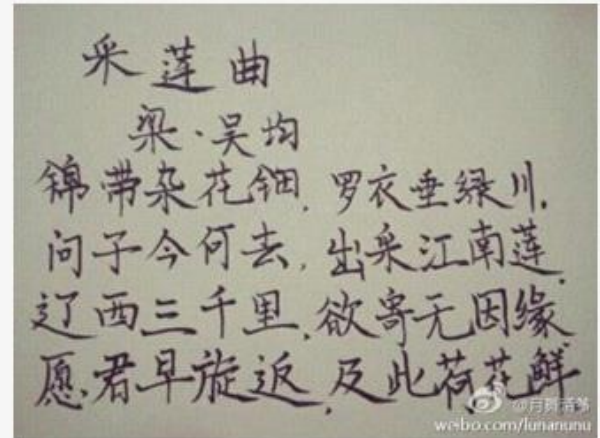 采莲曲
梁·吴均
锦带杂花钿,罗衣垂绿川.
问子今何去,出采江南莲.
辽西三千里,欲寄无因缘
愿君早旋返,及此荷花鲜
weibo.com/lunanunu